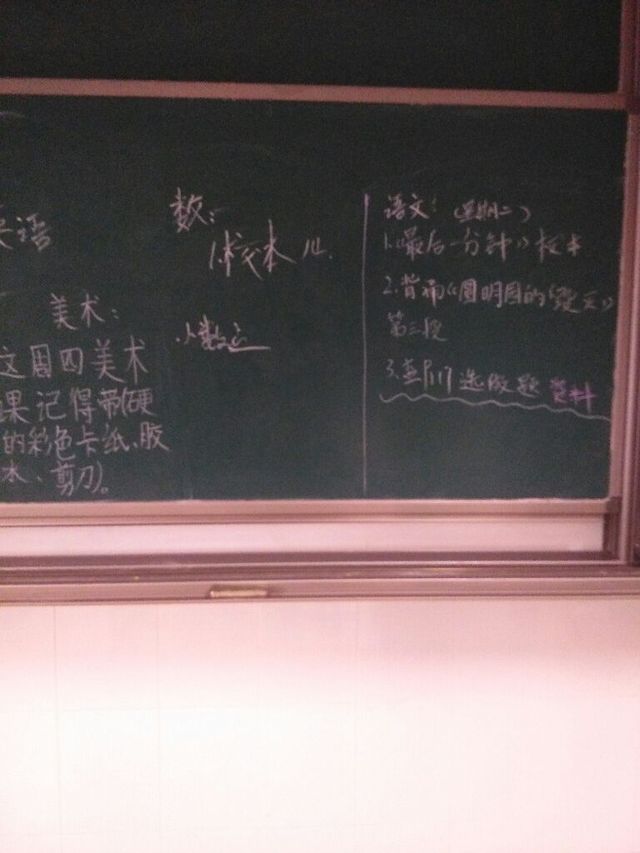 语
美术：
这周四美术
果记得带(硬
的彩色卡纸、胶
水、剪刀)。
数：
1.校本 14.
2.
语文：（星期二）
1.《最后一分钟》校本
2.背诵《圆明园的毁灭》
第三段
3.选做题 资料